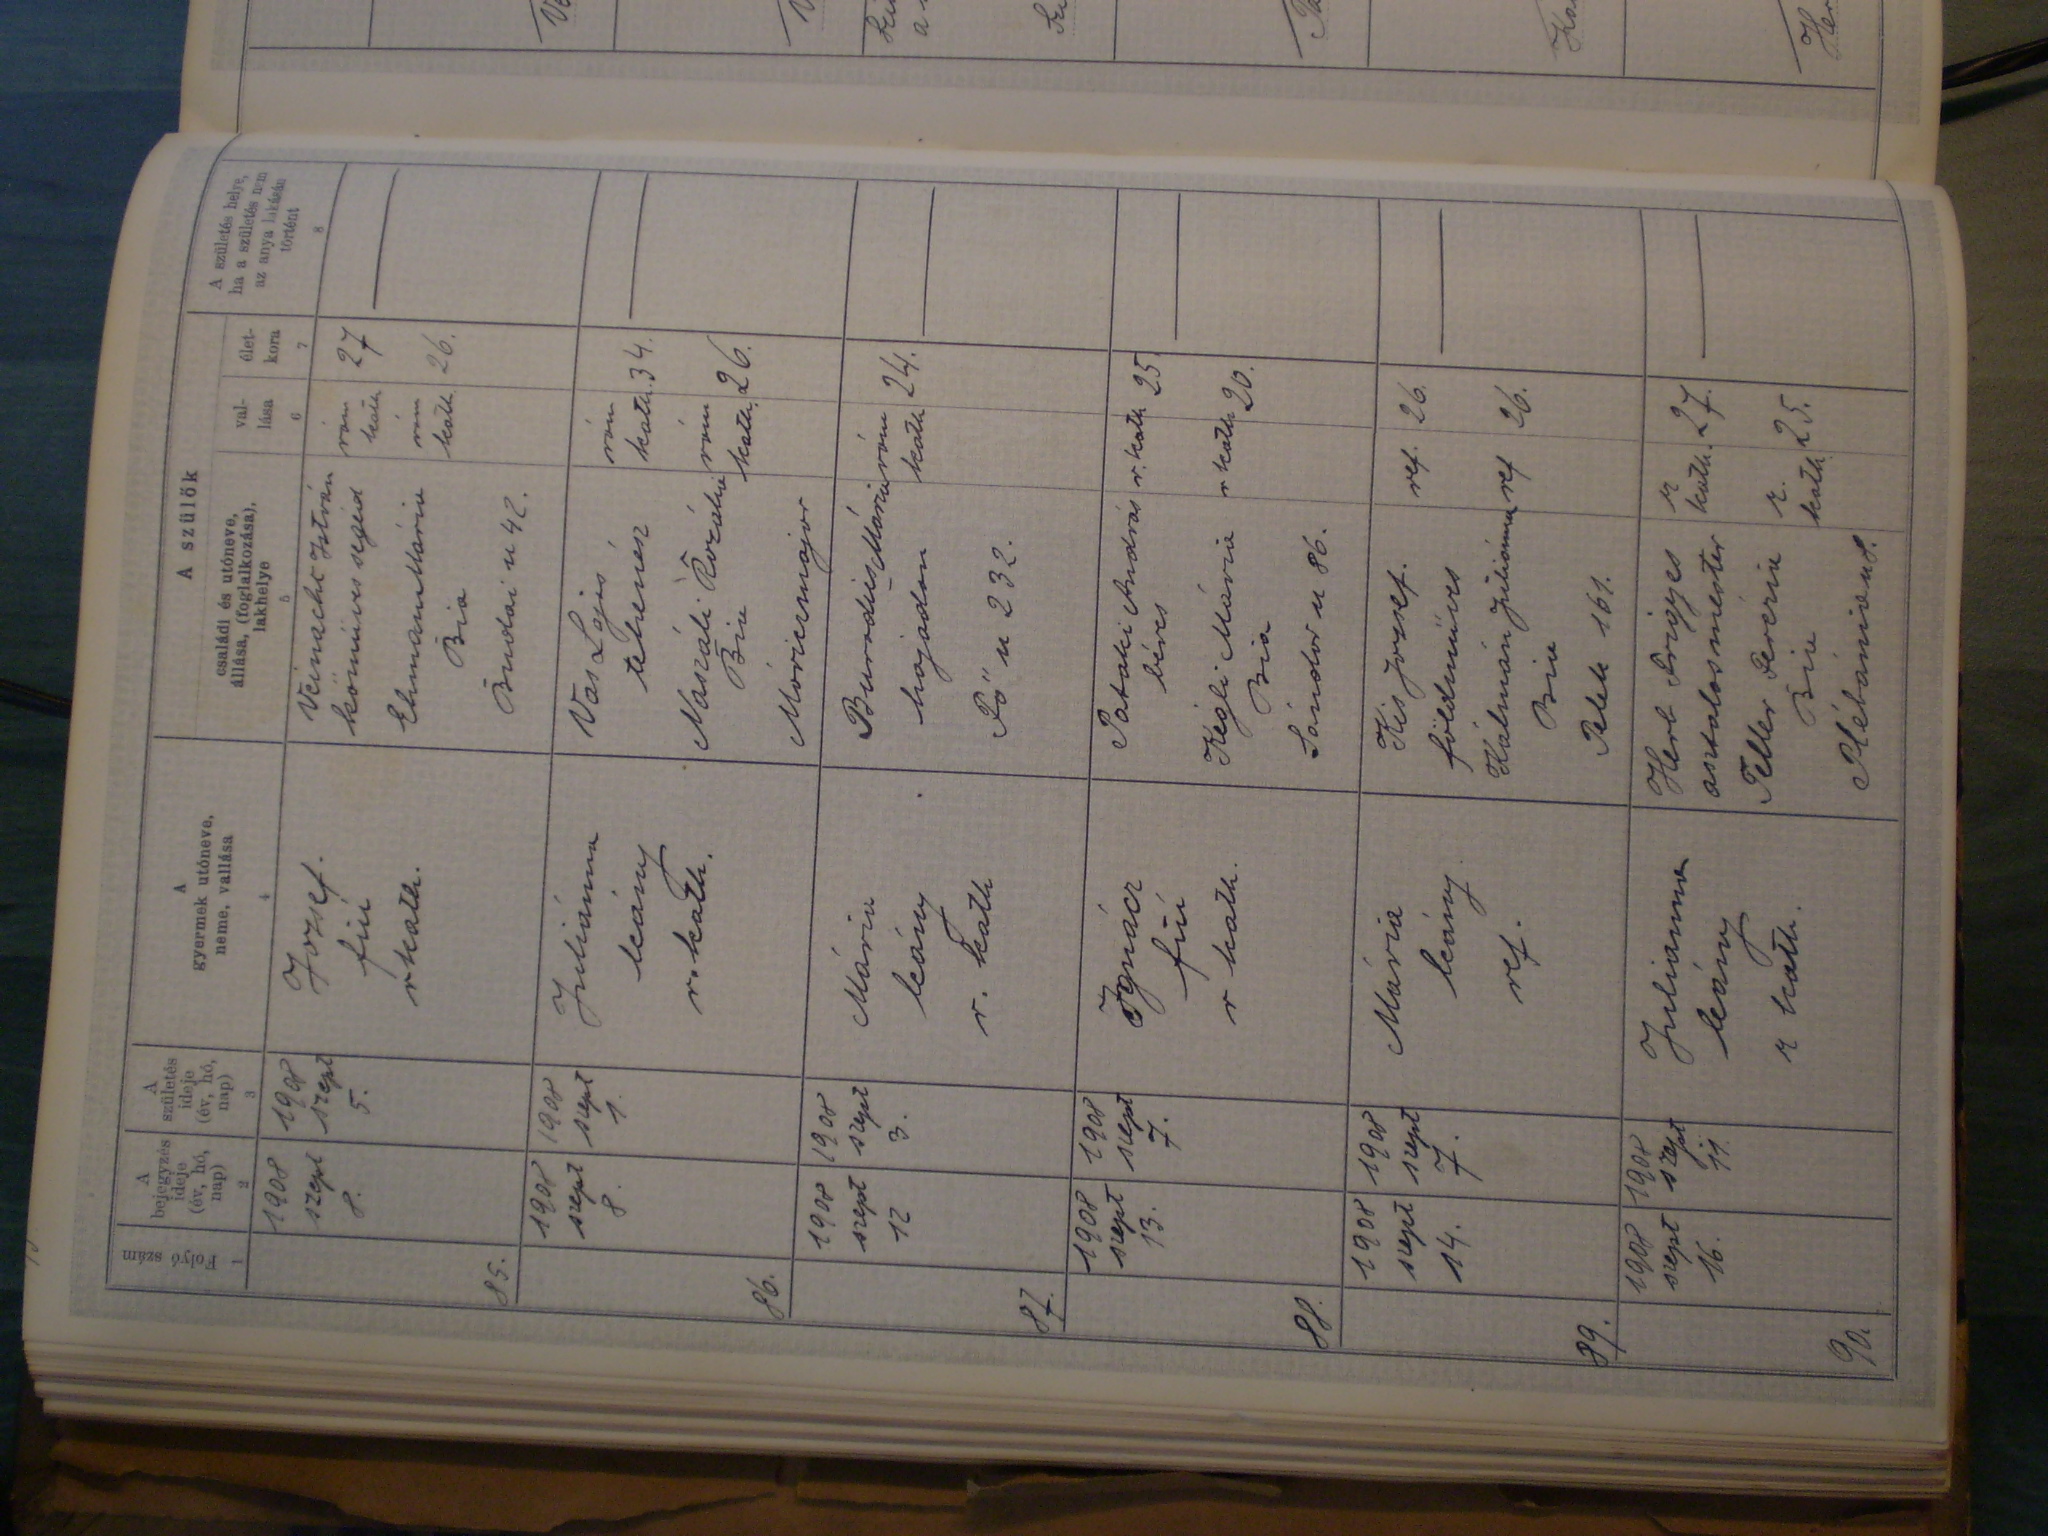 A szülők
Folyó szám
A
bejegyzés
ideje
(év, hó,
nap)
A
születés
ideje
(év, hó,
nap)
A
gyermek utóneve,
neme, vallása
családi és utóneve,
állása, (foglalkozása),
lakhelye
val-
lása
élet-
kora
A születés helye,
ha a születés nem
az anya lakásán
történt
1
2
3
4
5
6
7
8
85.
1908
szept
8.
1908
szept
5.
József.
fiú
r kath.
Veinacht István
kőműves segéd
Ehmann Mária
Bia
Budai u 42.
róm
kath
róm
kath
27
26.
86.
1908
szept
8.
1908
szept
1.
Juliánna
leány
r. kath.
Vas Lajos
tehenész
Naszáli Rozália
Bia
Móriczmajor
róm
kath.
róm
kath.
34.
26.
87.
1908
szept
12
1908
szept
3.
Mária
leány
r. kath
Mária
hajadon
Fő u 232.
róm
kath
24.
88.
1908
szept
13.
1908
szept
7.
Ignácz
fiú
r kath.
Pataki András
béres
Kégli Mária
Bia
Sándor u 86.
r. kath
r kath
25
20.
89.
1908
szept
14.
1908
szept
7.
Mária
leány
ref.
Kis József.
földműves
Kálmán Juliánna
Bia
Telek 161.
ref.
ref
26.
26.
90.
1908
szept
16.
1908
szept
11.
Julianna
leány
r kath.
Herb Frigyes
asztalosmester
Teller Terézia
Bia
Plébánia u 8.
r
kath.
r.
kath
27.
25.